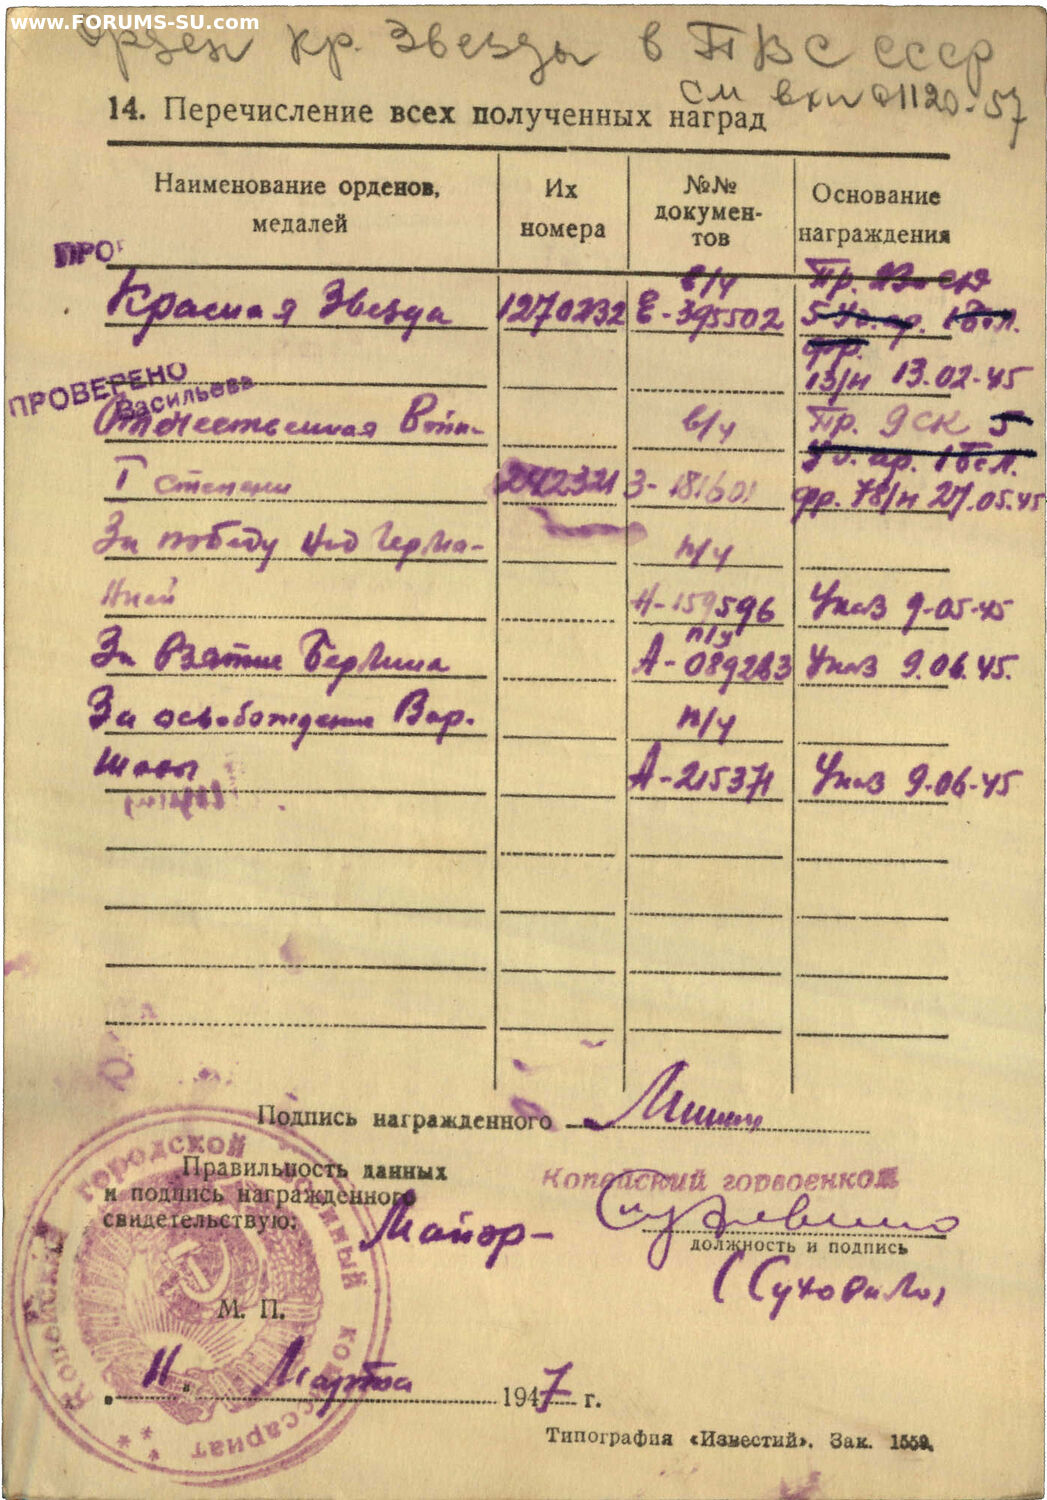 www.FORUMS-SU.com
Орден Кр. Звезды в ПВС СССР
см вхи 01120-57
14. Перечисление всех полученных наград
Наименование орденов, медалей
Их номера
№№ документов
Основание награждения
ПРОГ
в/ч Пр.
Красная Звезда 1270232 Е-395502 5 Уд. ар. 1 Бел.
фр.
13/н 13.02.45
ПРОВЕРЕНО
Васильева
Отечественная Войн- в/ч Пр. 9 СК 5
Уд. ар. 1 Бел.
I степени 242321 З-181601 фр. 78/н 27.05.45
За победу над Герма- п/у
нией Н-159596 Указ 9-05-45
п/у
За взятие Берлина А-089263 Указ 9.06.45.
За освобождение Вар- п/у
шавы А-215371 Указ 9-06-45
Подпись награжденного
Копейский горвоенком
Правильность данных
и подпись награжденного
свидетельствую: Майор-
должность и подпись
(Суховило)
М. П.
Копейский городской военный комиссариат
„11„ Марта 1947 г.
Типография «Известий». Зак. 1559.